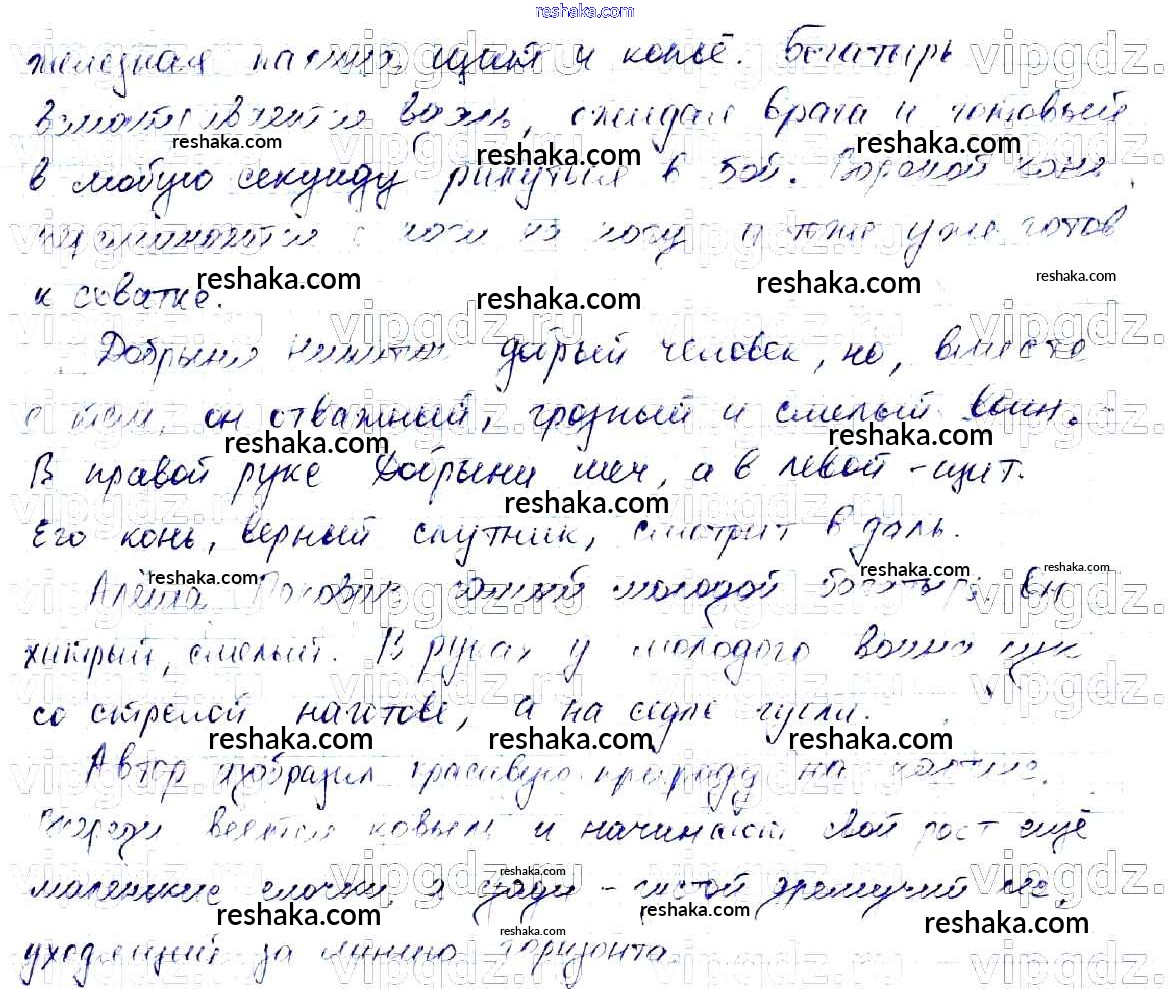 reshaka.com
железная щит и копьё. Богатырь
вдаль, ожидая врага и готовый
в любую секунду ринуться в бой. Вороной конь
с ноги на ногу и тоже уже готов
к схватке.
Добрыня Никитич добрый человек, но, вместе
с тем, он отважный, грозный и смелый воин.
В правой руке Добрыни меч, а в левой - щит.
Его конь, верный спутник, смотрит вдаль.
Алёша Попович самый молодой богатырь. Он
хитрый, смелый. В руках у молодого воина лук
со стрелой наготове, а на седле гусли.
Автор изобразил красивую природу на картине.
Впереди веется ковыль и начинают свой рост ещё
маленькие ёлочки, а сзади - густой дремучий лес,
уходящий за линию горизонта.